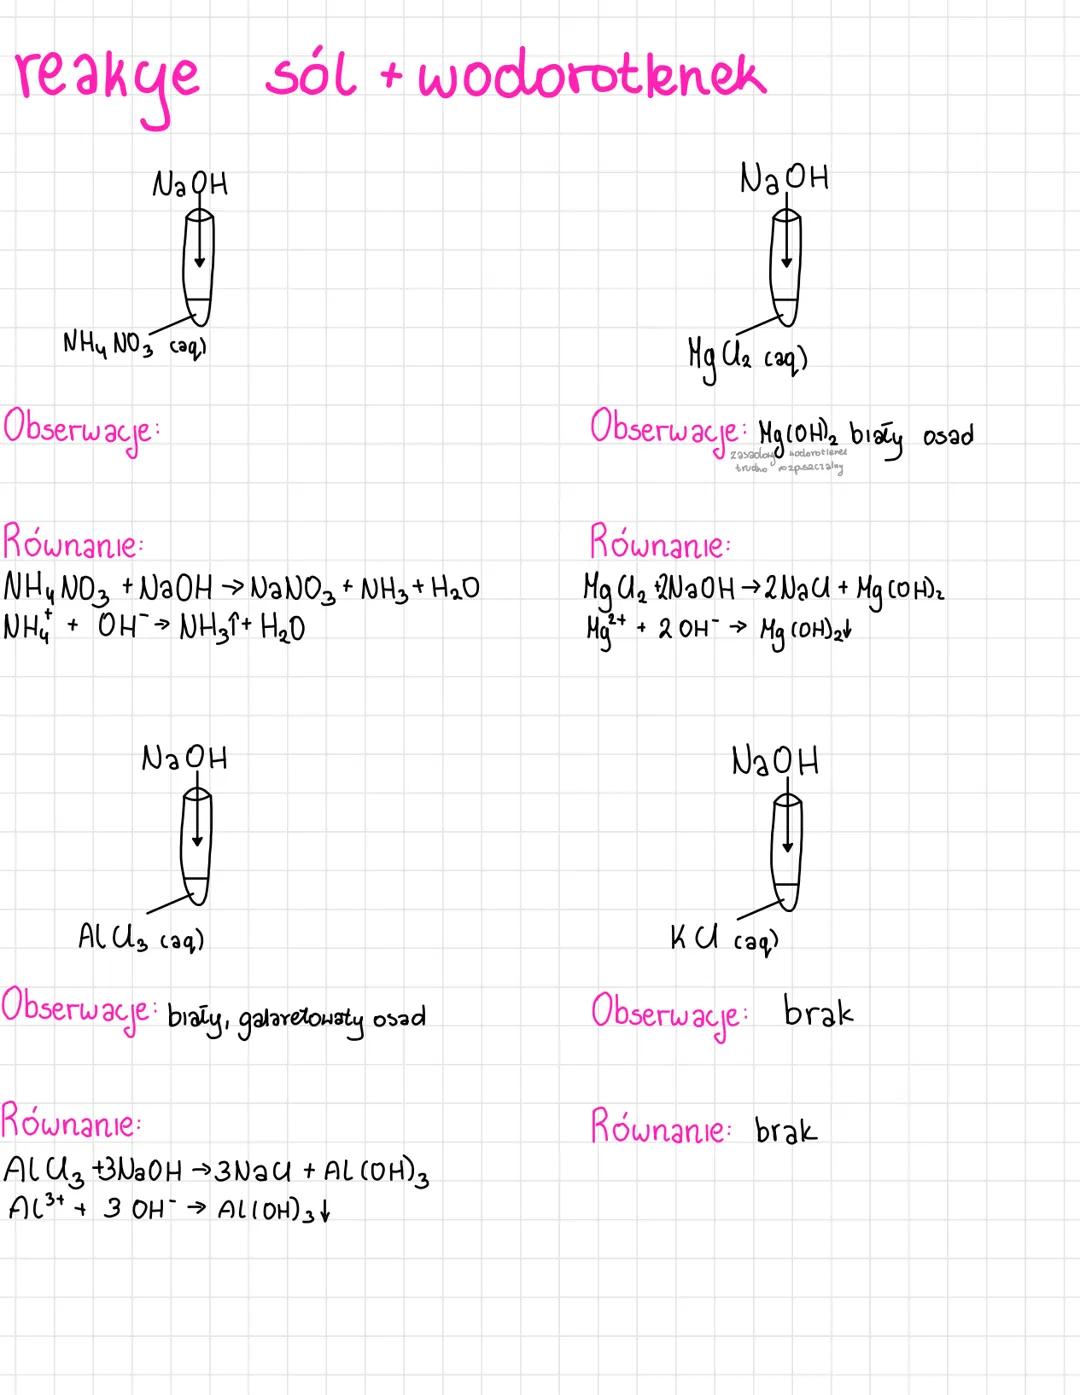 reakcje sól + wodorotlenek
NaOH
NH4NO3 (aq)
Obserwacje:
Równanie:
NH4NO3 + NaOH → NaNO3 + NH3 + H2O
NH4+ + OH- → NH3↑ + H2O
NaOH
MgCl2 (aq)
Obserwacje: Mg(OH)2 biały osad
zasadowy wodorotlenek
trudno rozpuszczalny
Równanie:
MgCl2 + 2NaOH → 2NaCl + Mg(OH)2
Mg2+ + 2OH- → Mg(OH)2↓
NaOH
AlCl3 (aq)
Obserwacje: biały, galaretowaty osad
Równanie:
AlCl3 + 3NaOH → 3NaCl + Al(OH)3
Al3+ + 3OH- → Al(OH)3↓
NaOH
KCl (aq)
Obserwacje: brak
Równanie: brak